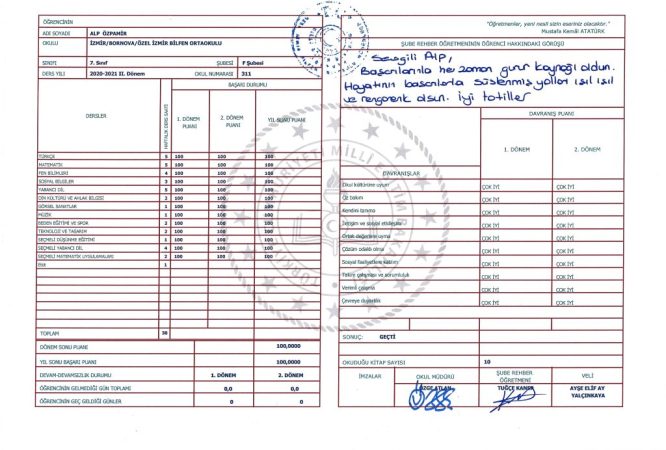 ÖĞRENCİNİN
ADI SOYADI ALP ÖZPAMİR
OKULU İZMİR/BORNOVA/ÖZEL İZMİR BİLFEN ORTAOKULU
SINIFI 7. Sınıf ŞUBESİ F Şubesi
DERS YILI 2020-2021 II. Dönem OKUL NUMARASI 311
DERSLER
HAFTALIK DERS SAATİ
BAŞARI DURUMU
1. DÖNEM PUANI 2. DÖNEM PUANI YIL SONU PUANI
TÜRKÇE 5 100 100 100
MATEMATİK 5 100 100 100
FEN BİLİMLERİ 4 100 100 100
SOSYAL BİLGİLER 3 100 100 100
YABANCI DİL 5 100 100 100
DİN KÜLTÜRÜ VE AHLAK BİLGİSİ 2 100 100 100
GÖRSEL SANATLAR 1 100 100 100
MÜZİK 1 100 100 100
BEDEN EĞİTİMİ VE SPOR 2 100 100 100
TEKNOLOJİ VE TASARIM 2 100 100 100
SEÇMELİ DÜŞÜNME EĞİTİMİ 1 100 100 100
SEÇMELİ YABANCI DİL 4 100 100 100
SEÇMELİ MATEMATİK UYGULAMALARI 2 100 100 100
1
TOPLAM 38
DÖNEM SONU PUANI 100,0000
YIL SONU BAŞARI PUANI 100,0000
DEVAM-DEVAMSIZLIK DURUMU 1. DÖNEM 2. DÖNEM
ÖĞRENCİNİN GELMEDİĞİ GÜN TOPLAMI 0,0 0,0
ÖĞRENCİNİN GEÇ GELDİĞİ GÜNLER 0 0
"Öğretmenler, yeni nesil sizin eseriniz olacaktır."
Mustafa Kemâl ATATÜRK
ŞUBE REHBER ÖĞRETMENİNİN ÖĞRENCİ HAKKINDAKİ GÖRÜŞÜ
Sevgili Alp,
Başarılarınla her zaman gurur kaynağı oldun.
Hayatının başarılarla süslenmiş yolları ışıl ışıl
ve rengarenk olsun. İyi tatiller
DAVRANIŞ PUANI
DAVRANIŞLAR 1. DÖNEM 2. DÖNEM
Okul kültürüne uyum ÇOK İYİ ÇOK İYİ
Öz bakım ÇOK İYİ ÇOK İYİ
Kendini tanıma ÇOK İYİ ÇOK İYİ
İletişim ve sosyal etkileşim ÇOK İYİ ÇOK İYİ
Ortak değerlere uyma ÇOK İYİ ÇOK İYİ
Çözüm odaklı olma ÇOK İYİ ÇOK İYİ
Sosyal faaliyetlere katılım ÇOK İYİ ÇOK İYİ
Takım çalışması ve sorumluluk ÇOK İYİ ÇOK İYİ
Verimli çalışma ÇOK İYİ ÇOK İYİ
Çevreye duyarlılık ÇOK İYİ ÇOK İYİ
SONUÇ: GEÇTİ
OKUDUĞU KİTAP SAYISI 10
İMZALAR OKUL MÜDÜRÜ ŞUBE REHBER ÖĞRETMENİ VELİ
TUĞÇE KANER AYŞE ELİF AY YALÇINKAYA